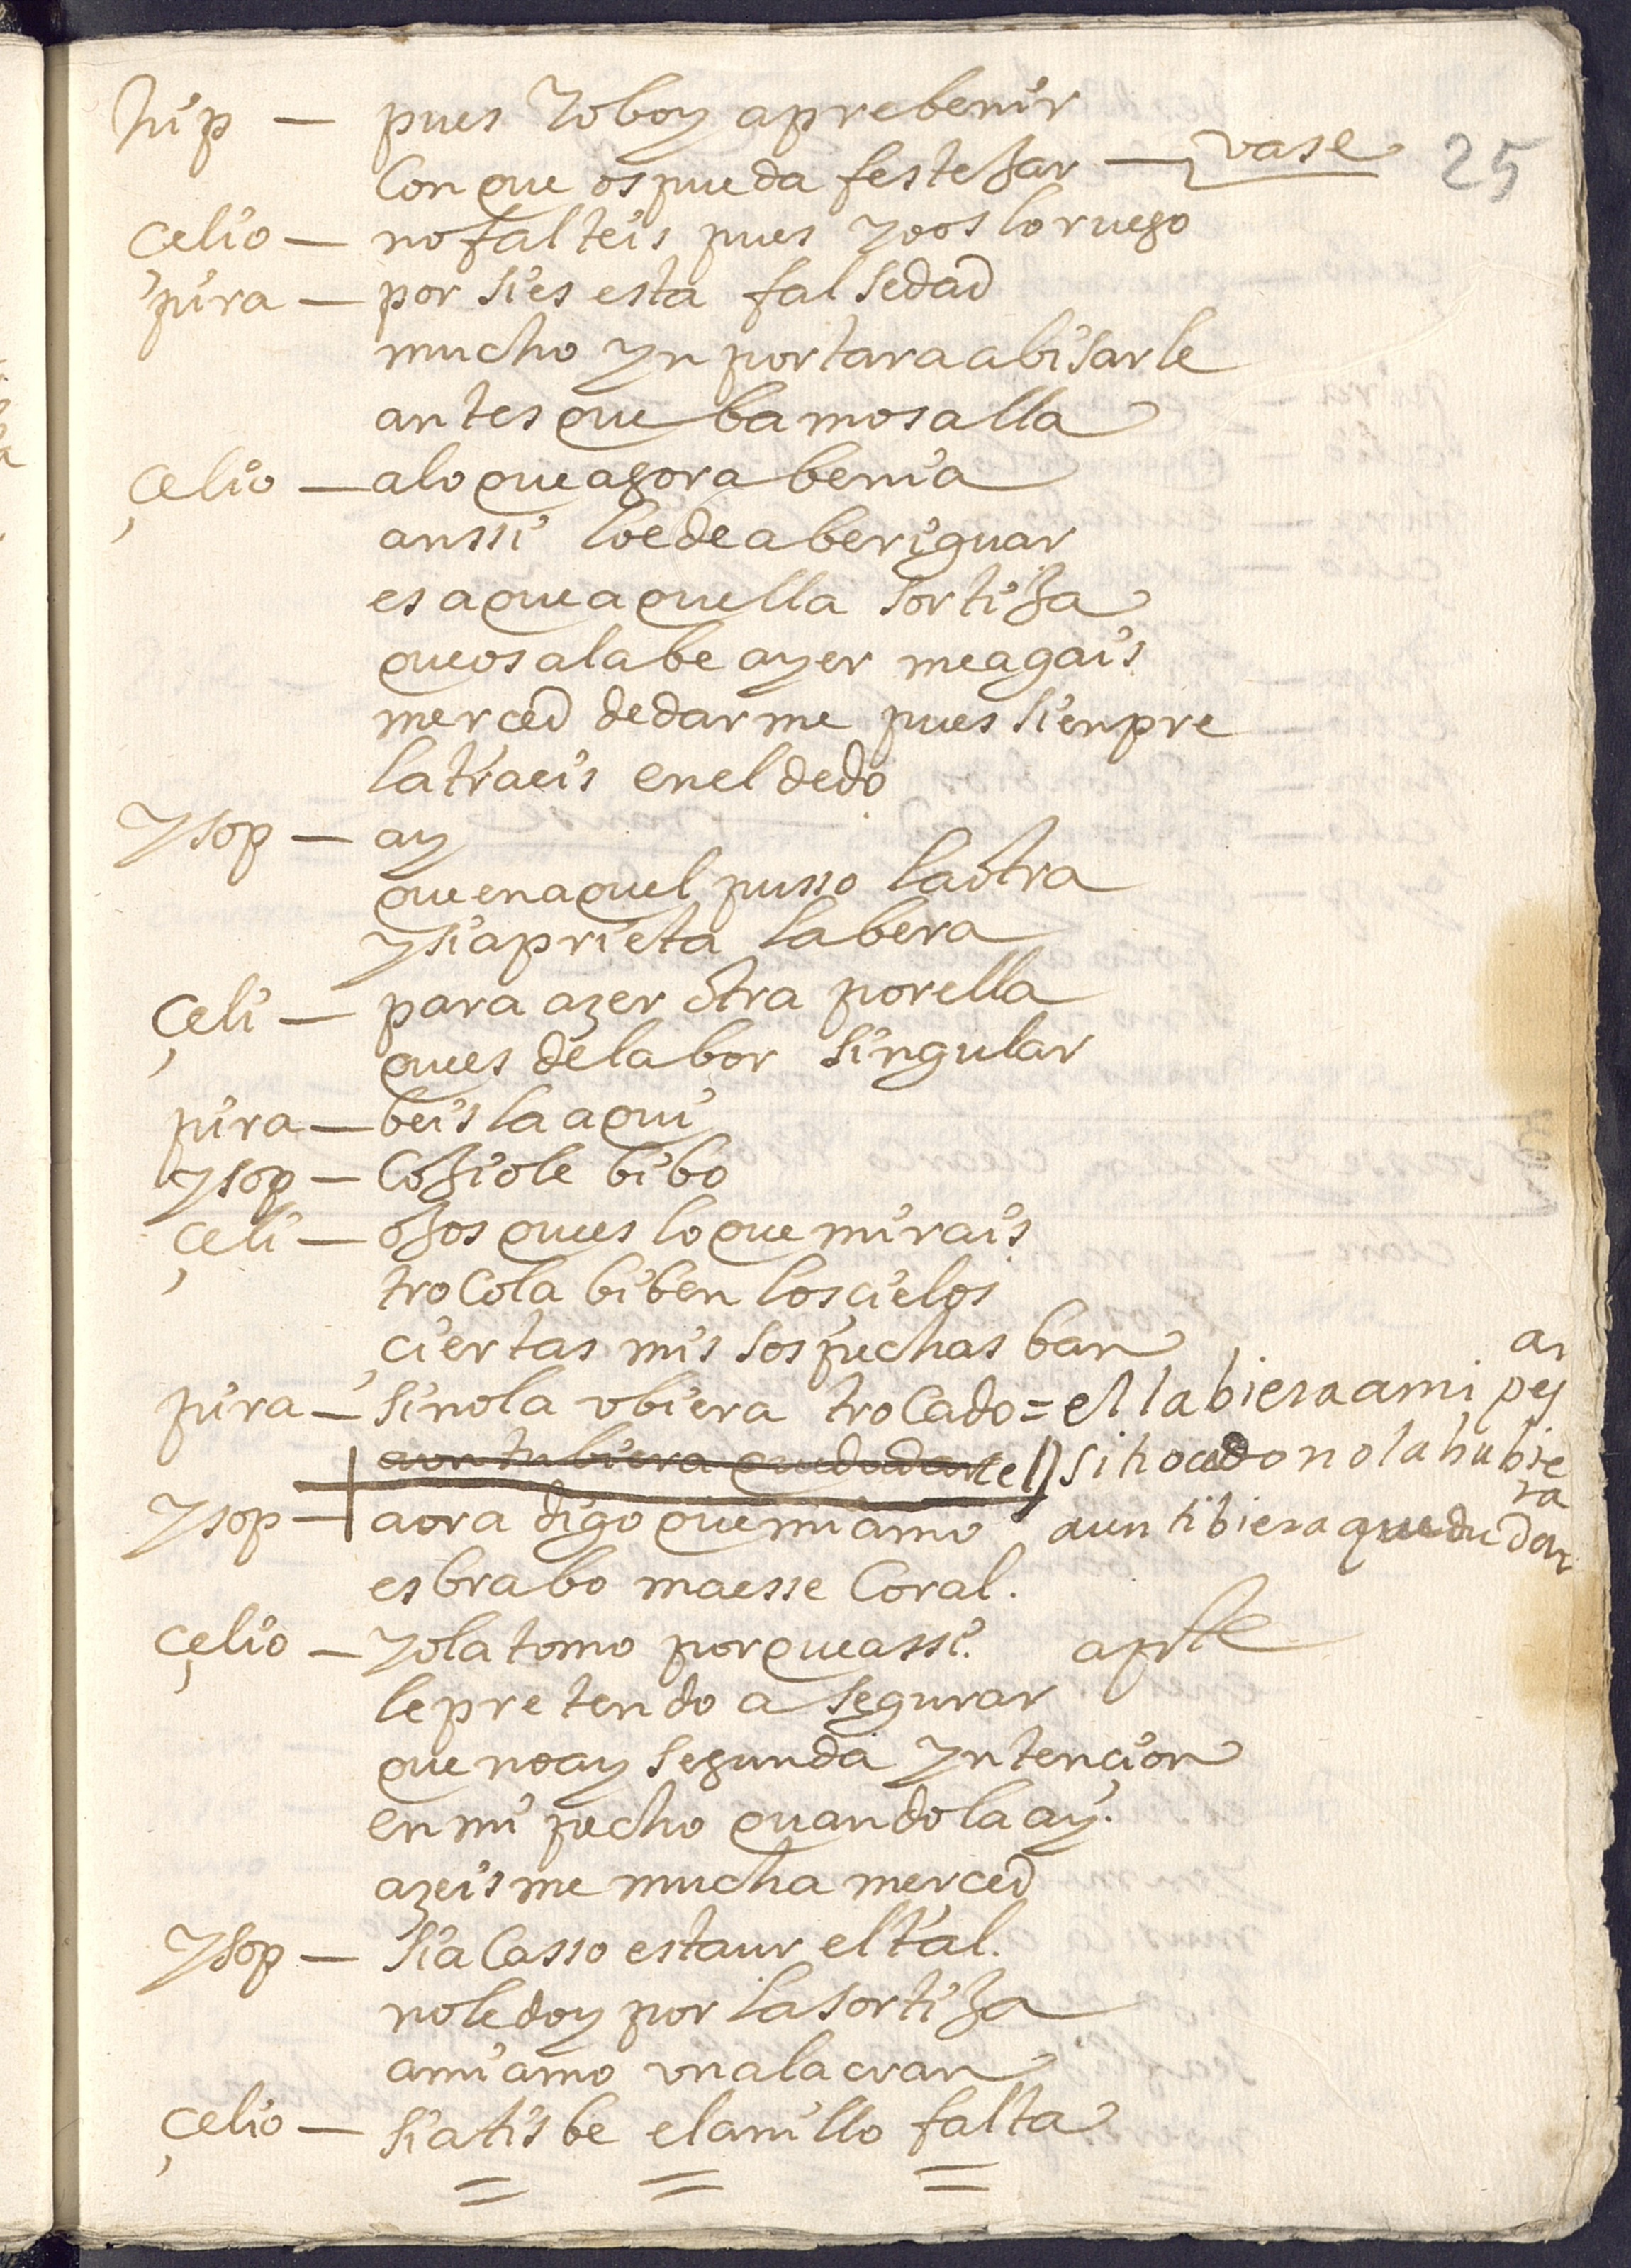 Jup — pues Yo boy a prebenir
Con que os pueda festeJar — vase
25
çelio — no falteis pues yo os lo ruego
pira — por si es esta falsedad
mucho ynportara abisarle
antes que bamos alla
çelio — a lo que agora benia
anssi lo e de aberiguar
es a que aquella sortiJa
que os alabe ayer me agais
merced de darme pues sienpre
la traeis en el dedo
ysop — ay
que en aquel pusso la otra
y si aprieta la bera
çeli — para azer otra por ella
ques de labor singular
pira — beisla aqui
ysop — CoJiole bibo
çeli — oJos ques lo que mirais
trocola biben los çielos
çiertas mis sospechas ban
pira — si no la ubiera troCado = el la biera a mi pes
ar
aun tubiera que dudar el si trocado no la hubie
ra
ysop — aora digo que mi amo aun tibiera que dudar
es brabo maesse Coral.
çelio — yo la tomo porque assi. apte
le pretendo asegurar
que no ay segunda yntençion
en mi pecho quando la ay.
azeisme mucha merced
ysop — si a Casso esta ur el tal.
no le doy por la sortiJa
a mi amo un alacran
çelio — si a tisbe el anillo falta